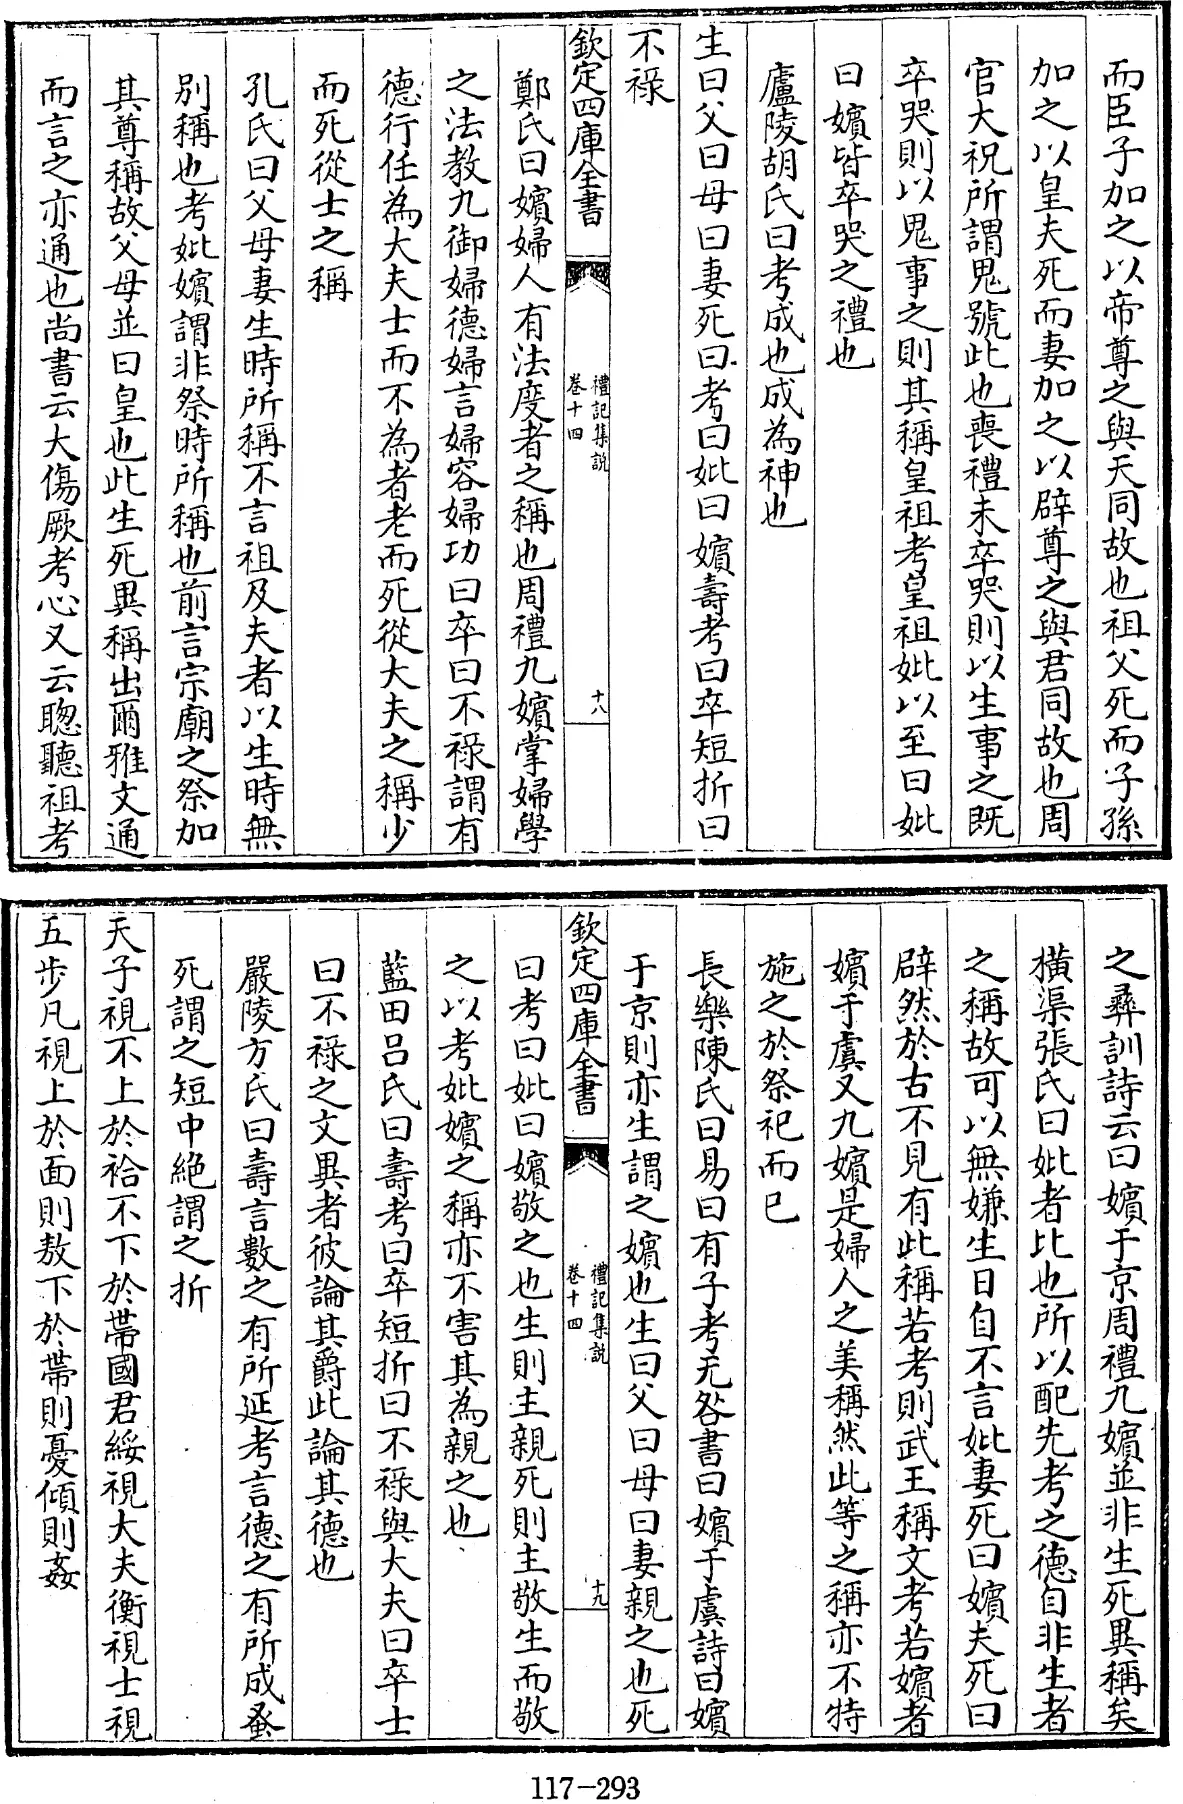 而臣子加之以帝尊之與天同故也祖父死而子孫
加之以皇夫死而妻加之以辟尊之與君同故也周
官大祝所謂鬼號此也喪禮未卒哭則以生事之既
卒哭則以鬼事之則其稱皇祖考皇祖妣以至曰妣
曰嬪皆卒哭之禮也
廬陵胡氏曰考成也成為神也
生曰父曰母曰妻死曰考曰妣曰嬪壽考曰卒短折曰
不祿
欽定四庫全書
禮記集說
卷十四
十八
鄭氏曰嬪婦人有法度者之稱也周禮九嬪掌婦學
之法教九御婦德婦言婦容婦功曰卒曰不祿謂有
德行任為大夫士而不為者老而死從大夫之稱少
而死從士之稱
孔氏曰父母妻生時所稱不言祖及夫者以生時無
別稱也考妣嬪謂非祭時所稱也前言宗廟之祭加
其尊稱故父母並曰皇也此生死異稱出爾雅文通
而言之亦通也尚書云大傷厥考心又云聰聽祖考
之彝訓詩云曰嬪于京周禮九嬪並非生死異稱矣
橫渠張氏曰妣者比也所以配先考之德自非生者
之稱故可以無嫌生日自不言妣妻死曰嬪夫死曰
辟然於古不見有此稱若考則武王稱文考若嬪者
嬪于虞又九嬪是婦人之美稱然此等之稱亦不特
施之於祭祀而已
長樂陳氏曰易曰有子考无咎書曰嬪于虞詩曰嬪
于京則亦生謂之嬪也生曰父曰母曰妻親之也死
欽定四庫全書
禮記集說
卷十四
十九
曰考曰妣曰嬪敬之也生則主親死則主敬生而敬
之以考妣嬪之稱亦不害其為親之也
藍田呂氏曰壽考曰卒短折曰不祿與大夫曰卒士
曰不祿之文異者彼論其爵此論其德也
嚴陵方氏曰壽言數之有所延考言德之有所成蚤
死謂之短中絕謂之折
天子視不上於袷不下於帶國君綏視大夫衡視士視
五步凡視上於面則敖下於帶則憂傾則姦
117-293